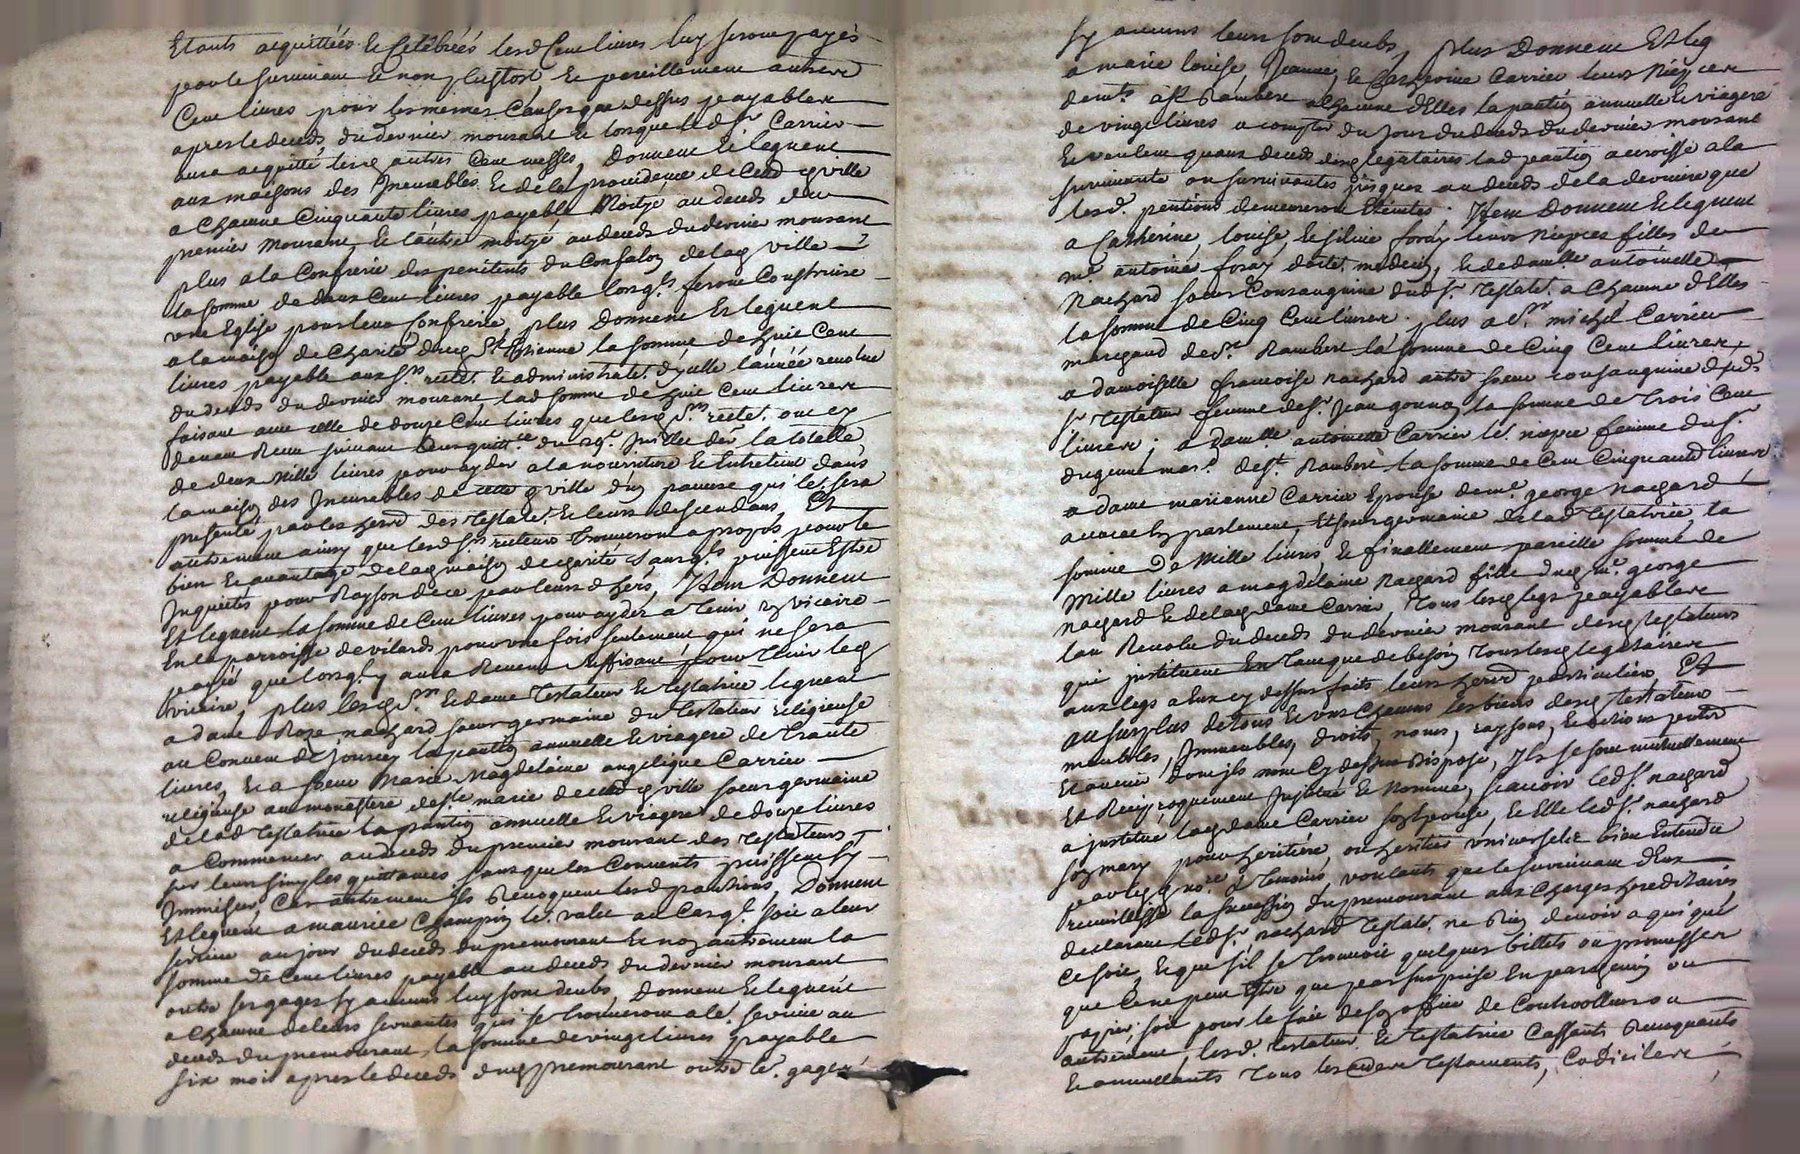 Etants acquittées & Celebrées lesd Cent livres luy seront payés
par le survivant & non plustost, & pareillement autres
Cent livres pour les mesmes Causes que dessus payables
apres le deceds du dernier mourant & lorsque led sr Carrier
aura acquitté lesd autres Cent messes, Donnent & leguent
aux maisons des Incurables & de la providence de Cested ville
a Chacune Cinquante livres payable Moitié au deceds du
premier Mourant, & l'autre moitié au deceds du dernier mourant
plus a la Confrerie des penitents du Confalon de lad ville
la somme de deux Cent livres payable lorsqls feront Construire
une Eglise pour leur Confrerie, plus Donnent & leguent
a la maison de Charité dud St Etienne la somme de huit Cent
livres payable aux srs rectrs & administratrs d'jcelle l'année revolue
du deceds du dernier mourant lad somme de huit Cent livres
faisant avec celle de douze Cent livres que lesd srs rectrs ont cy
devant Receu suivant leur quittce du 29e Juillet der la totalle
de deux Mille livres pour ayder a la nourriture & Entretient dans
la maison des Incurables de cette ville d'un pauvre qui leur sera
presenté par les hers des Testatrs & leurs descendans, Et
autrement ainsy que lesd srs recteurs trouveront a propos pour le
bien & avantage de lad maison de charité sans qls puissent Estre
Inquietés pour Rayson de ce par leursd hers, Item Donnent
Et leguent la somme de Cent livres pour ayder a tenir un vicaire
En la parroisse de vilards pour une fois seulement, qui ne sera
payé que lorsql y aura Revenu suffisant pour tenir led
vicaire, plus lesd sr & dame Testateur & Testatrice leguent
a dame Roze nachard soeur germaine du Testateur religieuse
au Convent de Jourcey la pention annuelle & viagere de trante
livres, & a soeur Marie Magdelaine angelique Carrier
religieuse au monastere de ste marie de cested ville soeur germaine
de lad Testatrice la pention annuelle & viagere de douze livres
a Commencer au deceds du premier mourant des Testateurs
sur leurs simples quittances sans que les Convents puissent s'y
Immiscer Car autrement ils Revoquent lesd pentions, Donnent
Et leguent a maurice Champin le valet au Cas ql soit a leur
service au jour du deceds du premourant & non autrement la
somme de Cent livres payable au deceds du dernier mourant
outre ses gages sy aucuns luy sont deubs, Donnent & leguent
a Chacune de leurs servantes qui se trouveront a le service au
deceds du premourant, la somme de vingt livres payable
six mois apres le deceds dud premourant outre le gages
sy aucuns leurs sont deubs, plus Donnent Et leg
a marie louise, Jeanne, & Catherine Carrier leurs Niepces
demts a st Rambert a Chacune d'Elles la pention annuelle & viagere
de vingt livres a compter du Jour du deceds du dernier mourant
& veulent quaux deceds desd legataires lad pention acroisse a la
survivante ou survivantes jusques au deceds de la derniere que
lesd. pentions demeureront Eteintes. Item Donnent & leguent
a Catherine, louise, & silvie foray leurs Niepces filles de
me antoine foray doctr medecin, & de damlle antoinette
Nachard soeur Consanguine dud sr Testatr a Chacune d'Elles
la somme de Cinq Cent livres. plus a sr michel Carrier
marchand de st Rambert la somme de Cinq Cent livres,
a damoiselle francoise nachard autre soeur consanguine dud
sr Testateur femme de sr Jean gonnon la somme de Trois Cent
livres; a damlle antoinette Carrier le niepce femme du sr
duguent mard de st Rambert la somme de Cent Cinquante livres
a dame marianne Carrier Epouse de me george nachard
avocat En parlement, & soeur germaine de lad Testatrice la
somme De Mille livres, & finallement pareille somme de
Mille livres a magdelaine nachard fille dud me george
nachard & de lad dame Carrier, tous lesd legs payables
l'an Revolu du deceds du dernier mourant desd testateurs
qui jnstituent En tant que de besoin tous lesd legataires
aux legs a Eux cy dessus faits leurs hers particuliers, Et
au surplus de tous & uns chacuns les biens desd testateurs
meubles, Immeubles, droits, noms, raysons, & actions puntr
Et avenir dont jls nont Cy dessus Disposé, Jls se sont mutuellement
Et Reciproquement Jnstitué & Nommé, scavoir led sr nachard
a jnstitué lad dame Carrier son Epouse, & Elle led sr nachard
son mary pour heritiere, ou heritier universelle bien Entendue
par led nore & temoins, voulants que le survivant d'Eux
recueillisse la succession du premourant aux Charges hereditaires
declarant led sr nachard Testatr ne Rien devoir a qui que
Ce soit, & que sil se trouvoit quelques billets ou promesses
que Ce ne peut Estre que par surprise En parchemin ou
papier soit pour le fait de son office de Controolleur ou
autrement, lesd. Testateur & Testatrice Cassants Revoquants
& annullants tous les autres Testaments, Codiciles